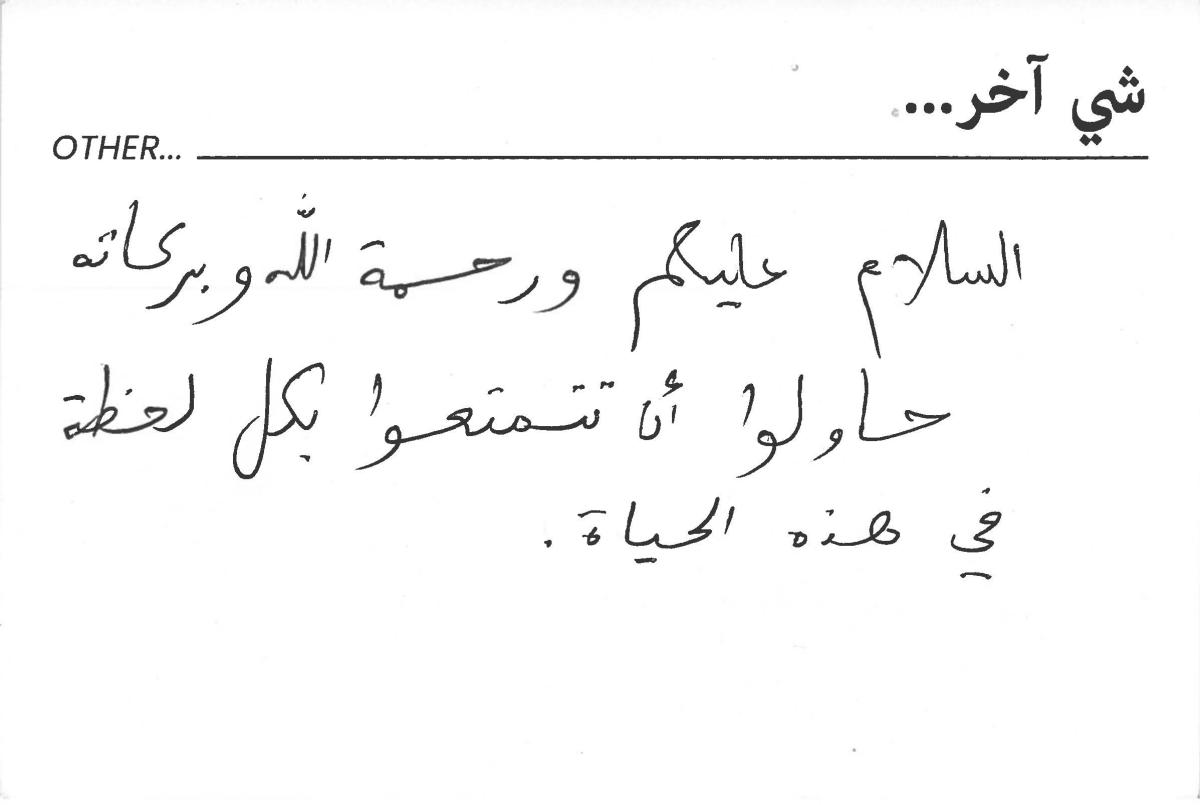 شي آخر...
OTHER...
السلام عليكم ورحمة الله وبركاته
حاولوا أن تتمتعوا بكل لحظة
في هذه الحياة.